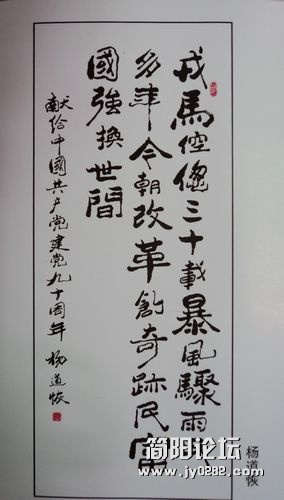 戎馬倥傯三十載暴風驟雨
多年今朝改革創奇跡民富
國強換世間
献给中國共产党建党九十周年 杨道恢
杨道恢
简阳论坛
www.jy0282.com